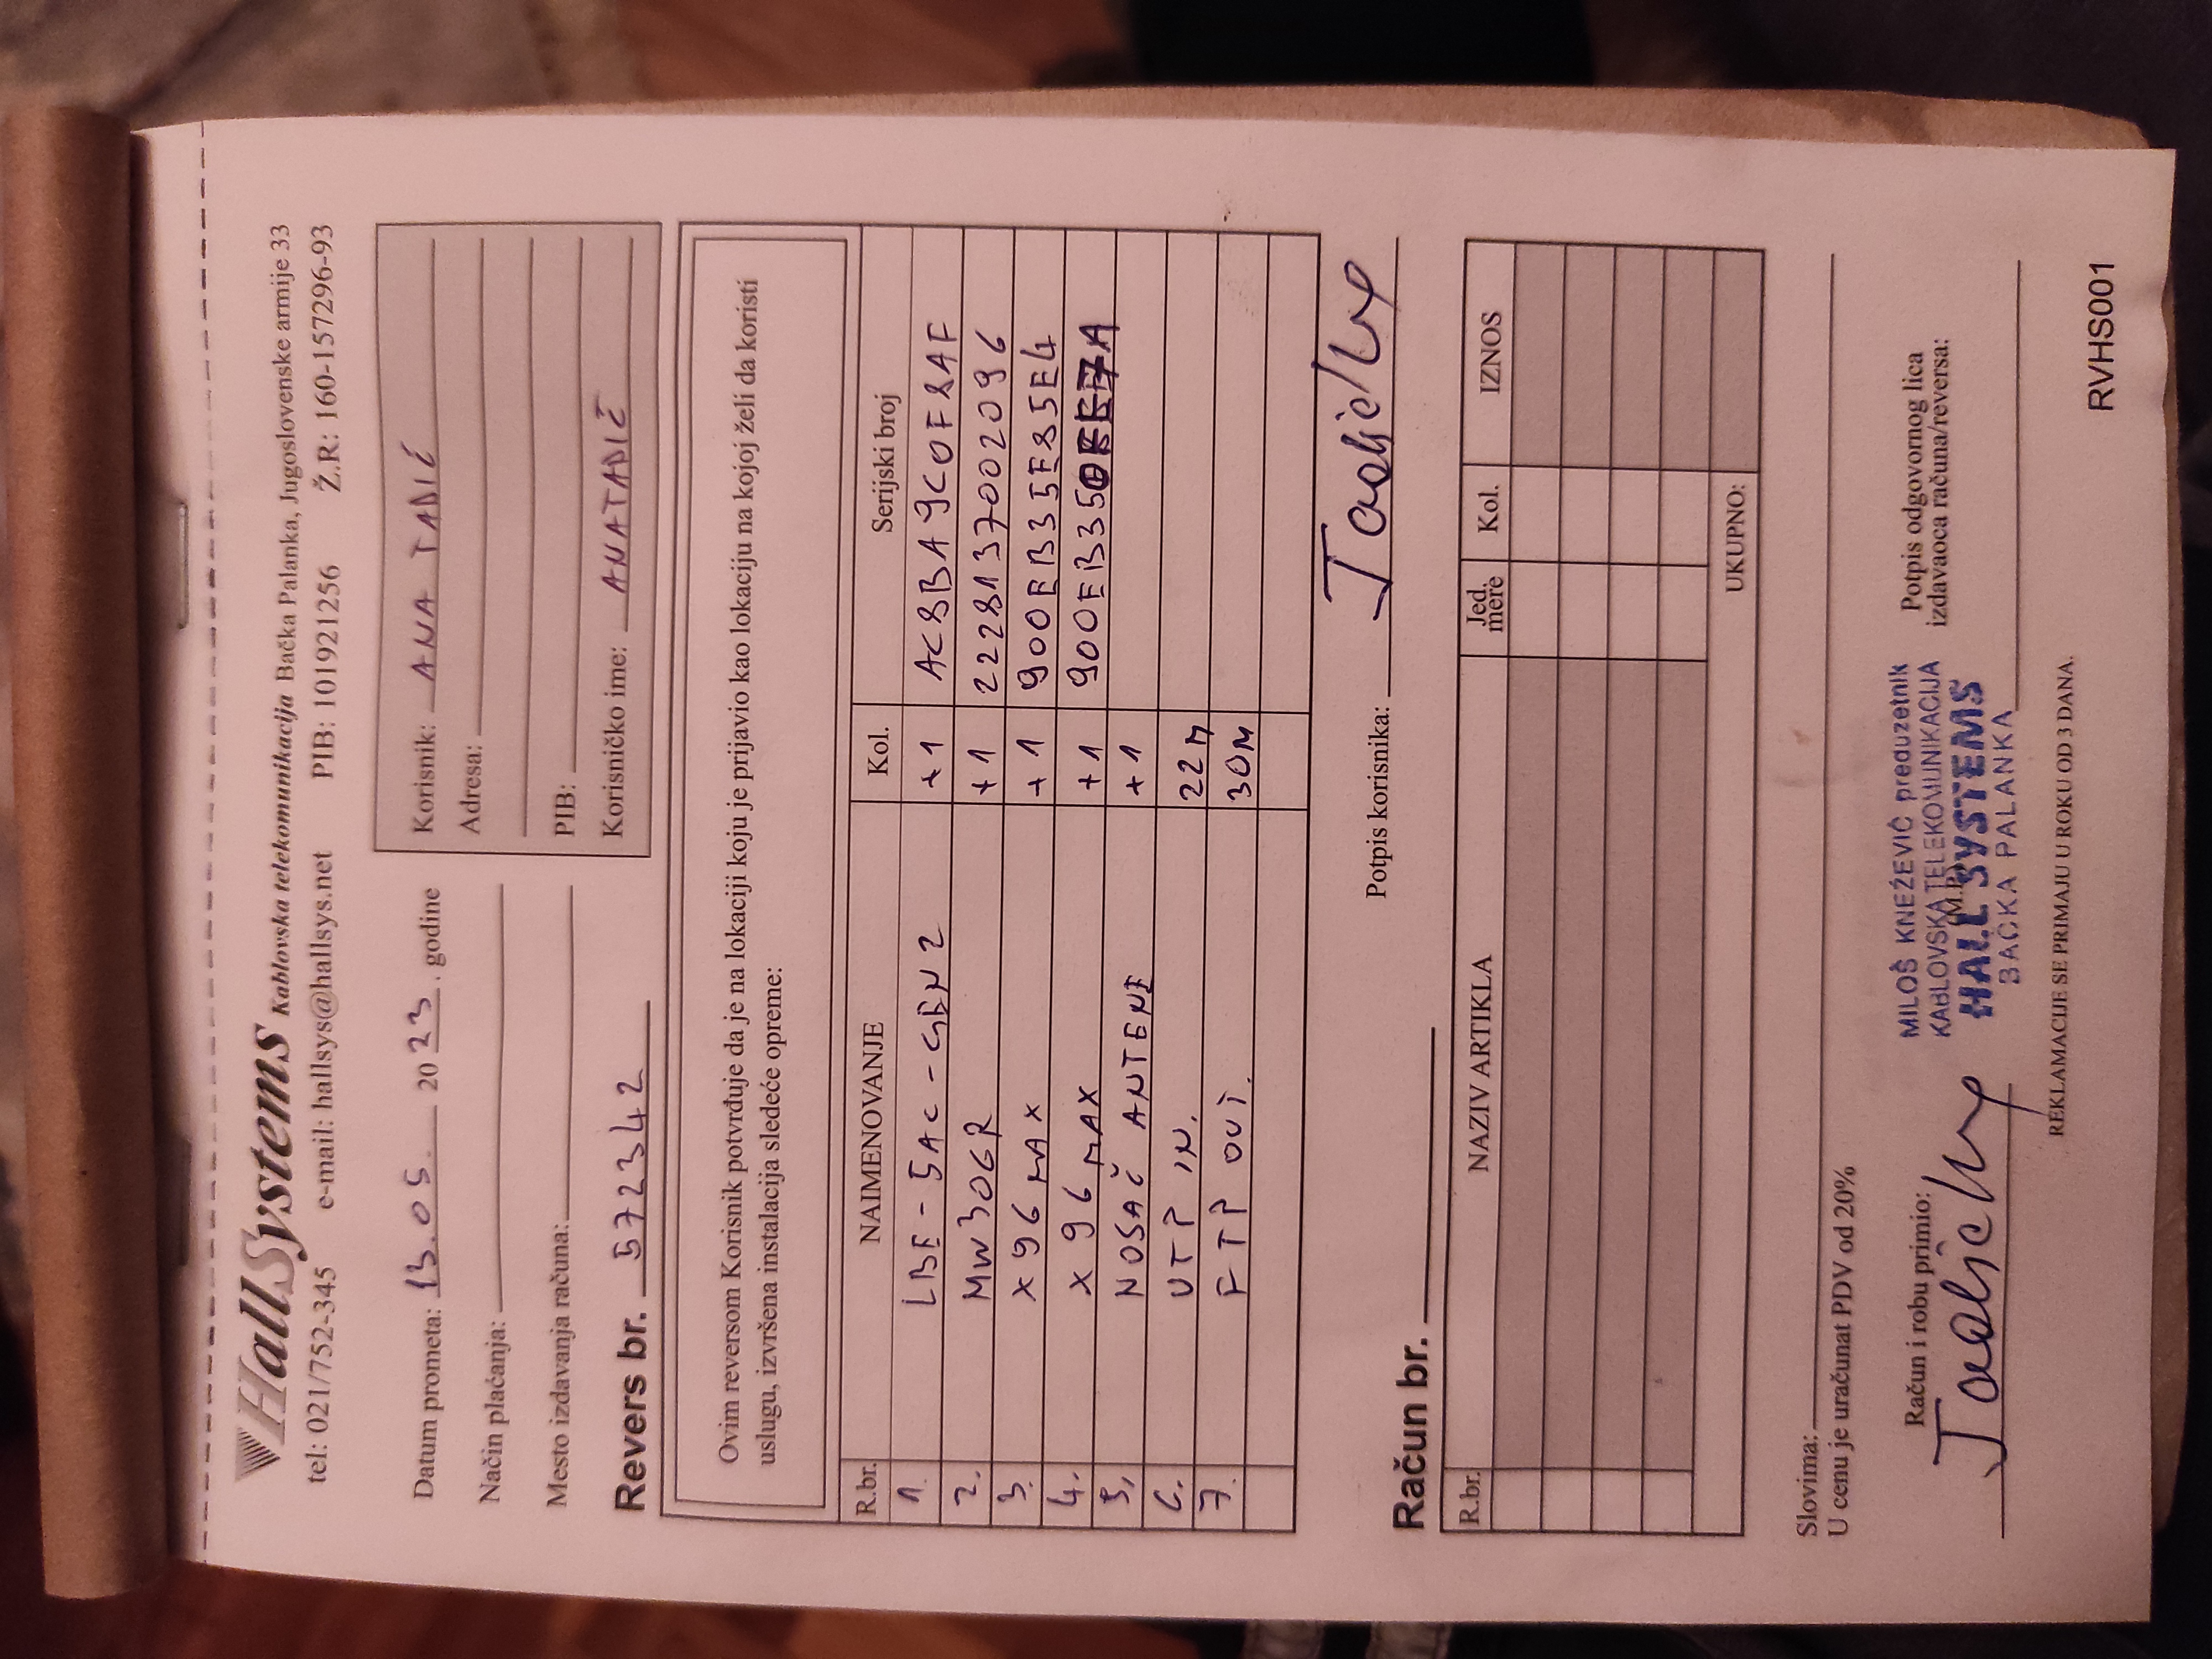 HallSystems Kablovska telekomunikacija Bačka Palanka, Jugoslovenske armije 33
tel: 021/752-345 e-mail: hallsys@hallsys.net PIB: 101921256 Ž.R: 160-157296-93
Datum prometa: 13.05. 2023. godine
Način plaćanja:
Mesto izdavanja računa:
Korisnik: ANA TADIĆ
Adresa:
PIB:
Korisničko ime: ANATADIĆ
Revers br. 5723342
Ovim reversom Korisnik potvrđuje da je na lokaciji koju je prijavio kao lokaciju na kojoj želi da koristi
uslugu, izvršena instalacija sledeće opreme:
R.br. NAIMENOVANJE Kol. Serijski broj
1. LBE-5AC-GEN2 +1 AC8BA9C0F8AF
2. MW30GR +1 2228137002096
3. X96 MAX +1 900EB35F85E4
4. X96 MAX +1
5. NOSAČ ANTENE +1
6. UTP IN. 22M
7. FTP OUT. 30M
Potpis korisnika:
Račun br.
R.br. NAZIV ARTIKLA Jed. mere Kol. IZNOS
UKUPNO:
Slovima:
U cenu je uračunat PDV od 20%
Račun i robu primio:
(M.P.)
MILOŠ KNEŽEVIĆ preduzetnik
KABLOVSKA TELEKOMUNIKACIJA
HALL SYSTEMS
BAČKA PALANKA
Potpis odgovornog lica
izdavaoca računa/reversa:
REKLAMACIJE SE PRIMAJU U ROKU OD 3 DANA.
RVHS001